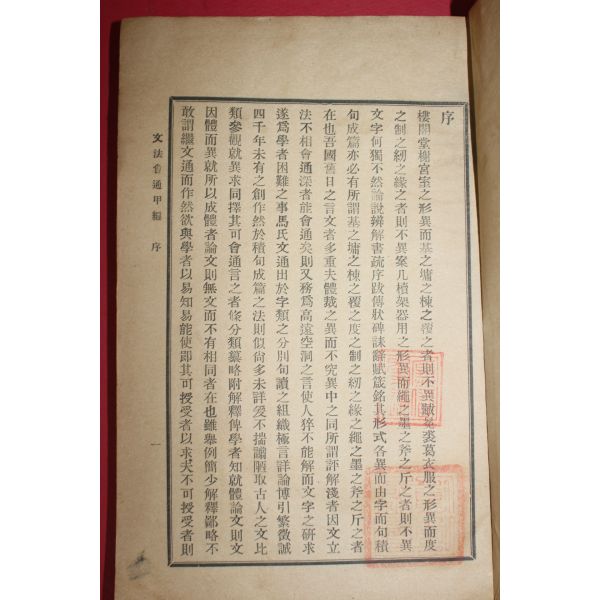 序
樓閣堂榭宮室之形異而基之墉之棟之覆之者則不異黻冕裘葛衣服之形異而度
之制之紉之緣之者則不異案几櫝架器用之形異而繩之墨之斧之斤之者則不異
文字何獨不然論說辨解書疏序跋傳狀碑誄辭賦箴銘其形式各異而由字而句積
句成篇亦必有所謂基之墉之棟之覆之度之制之紉之緣之繩之墨之斧之斤之者
在也吾國舊日之言文者多重夫體裁之異而不究異中之同所謂評解淺者因文立
法不相會通深者能會通矣則又務爲高遠空洞之言使人猝不能解而文字之研求
遂爲學者困難之事馬氏文通出於字類之分別句讀之組織極言詳論博引繁徵誠
四千年未有之創作然於積句成篇之法則似尙多未詳爰不揣譾陋取古人之文比
類參觀就異求同擇其可會通言之者條分類纂略附解釋俾學者知就體論文則文
因體而異就所以成體者論文則無文而不有相同者在也雖舉例簡少解釋鄙略不
敢謂繼文通而作然欲與學者以易知易能使卽其可授受者以求夫不可授受者則
文法會通甲編 序
一